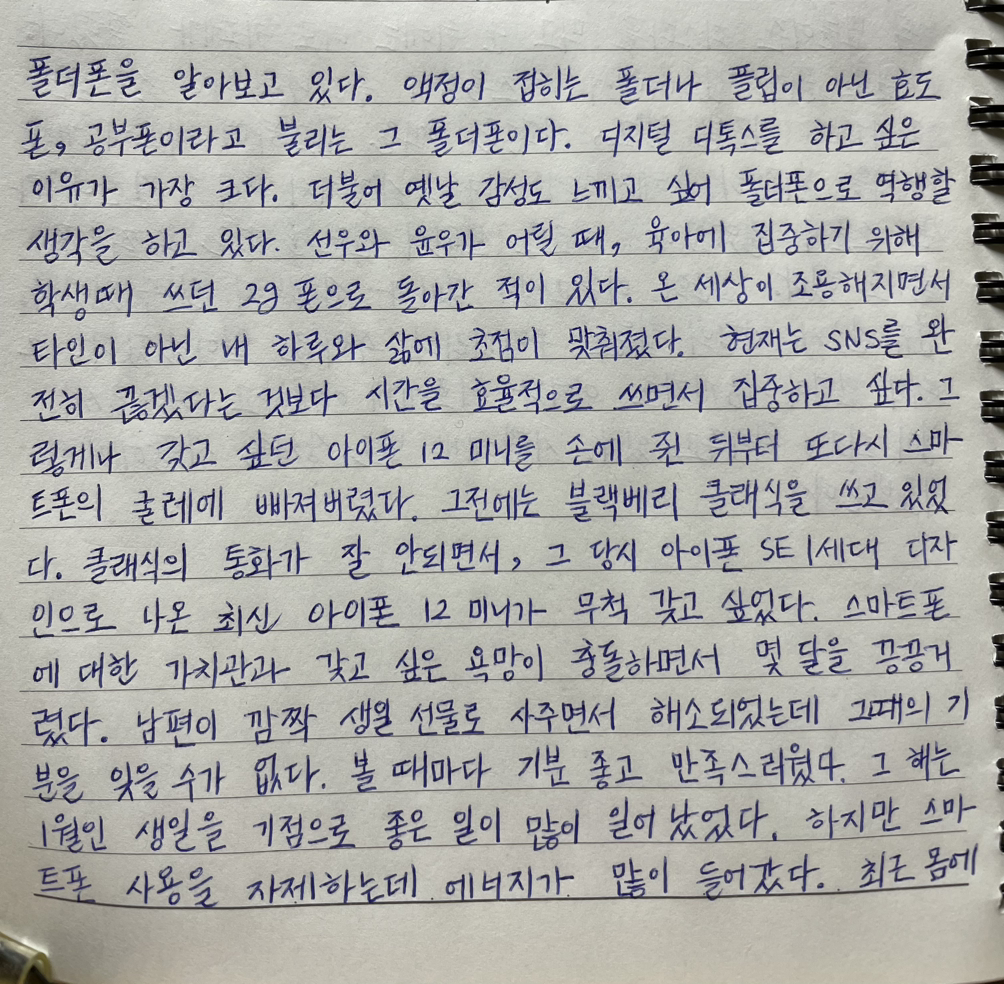 폴더폰을 알아보고 있다. 액정이 접히는 폴더나 플립이 아닌 효도
폰, 공부폰이라고 불리는 그 폴더폰이다. 디지털 디톡스를 하고 싶은
이유가 가장 크다. 더불어 옛날 감성도 느끼고 싶어 폴더폰으로 역행할
생각을 하고 있다. 선우와 윤우가 어릴 때, 육아에 집중하기 위해
학생때 쓰던 2g 폰으로 돌아간 적이 있다. 온 세상이 조용해지면서
타인이 아닌 내 하루와 삶에 초점이 맞춰졌다. 현재는 SNS를 완
전히 끊겠다는 것보다 시간을 효율적으로 쓰면서 집중하고 싶다. 그
렇게나 갖고 싶던 아이폰 12 미니를 손에 쥔 뒤부터 또다시 스마
트폰의 굴레에 빠져버렸다. 그전에는 블랙베리 클래식을 쓰고 있었
다. 클래식의 통화가 잘 안되면서, 그 당시 아이폰 SE 1세대 디자
인으로 나온 최신 아이폰 12 미니가 무척 갖고 싶었다. 스마트폰
에 대한 가치관과 갖고 싶은 욕망이 충돌하면서 몇 달을 끙끙거
렸다. 남편이 깜짝 생일 선물로 사주면서 해소되었는데 그때의 기
분을 잊을 수가 없다. 볼 때마다 기분 좋고 만족스러웠다. 그 해는
1월인 생일을 기점으로 좋은 일이 많이 일어났었다. 하지만 스마
트폰 사용을 자제하는데 에너지가 많이 들어갔다. 최근 몸에